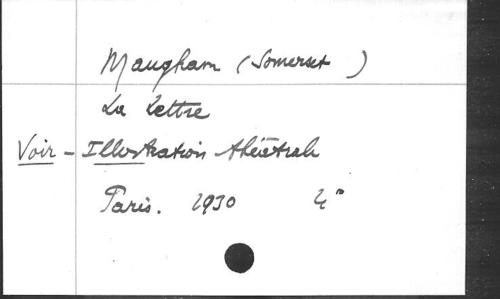 Maugham (Somerset )
La Lettre
Voir - Illustration théâtrale
Paris. 1930 4°